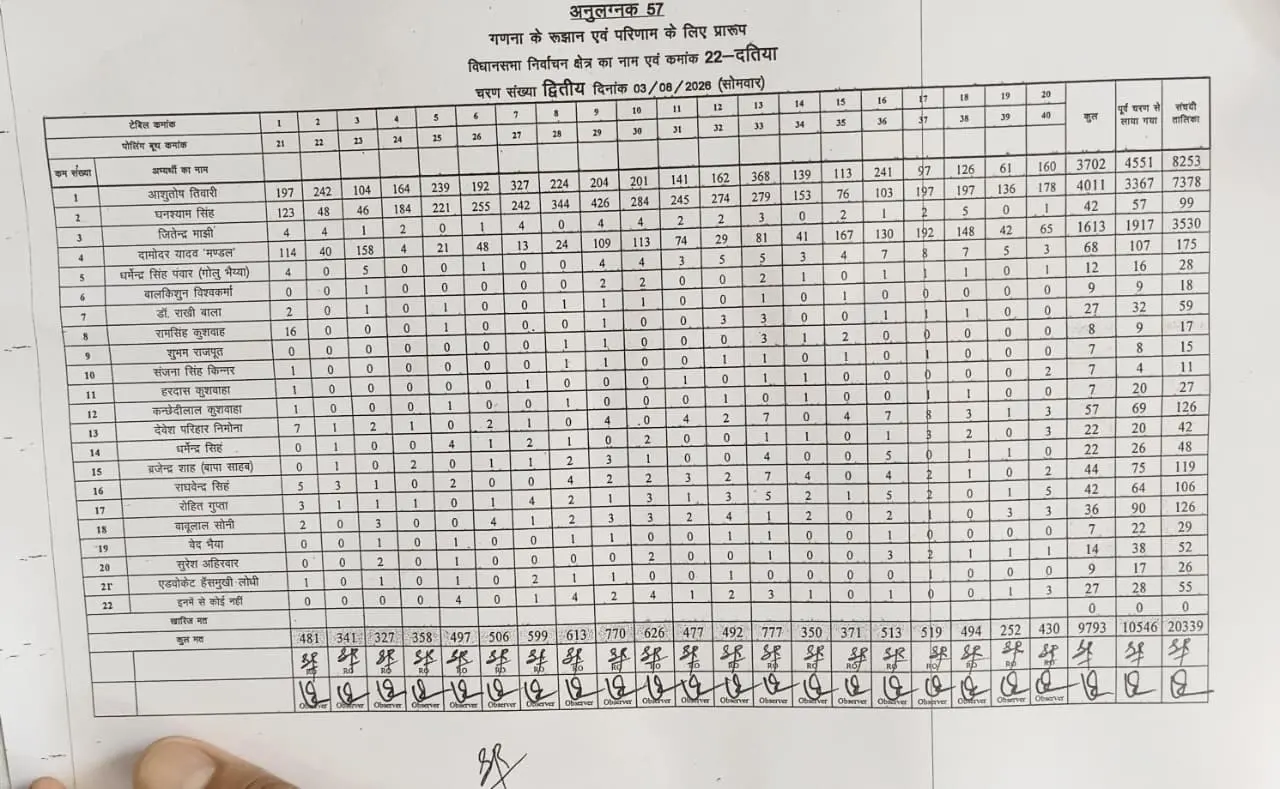 अनुलग्नक 57
गणना के रूझान एवं परिणाम के लिए प्रारूप
विधानसभा निर्वाचन क्षेत्र का नाम एवं कमांक 22–दतिया
चरण संख्या द्वितीय दिनांक 03/08/2026 (सोमवार)
टेबिल कमांक 1 2 3 4 5 6 7 8 9 10 11 12 13 14 15 16 17 18 19 20 कुल पूर्व चरण से लाया गया संचयी तालिका
पोलिंग बूथ कमांक 21 22 23 24 25 26 27 28 29 30 31 32 33 34 35 36 37 38 39 40
कम संख्या अभ्यर्थी का नाम
1 आशुतोष तिवारी 197 242 104 164 239 192 327 224 204 201 141 162 368 139 113 241 97 126 61 160 3702 4551 8253
2 घनश्याम सिंह 123 48 46 184 221 255 242 344 426 284 245 274 279 153 76 103 197 197 136 178 4011 3367 7378
3 जितेन्द्र माझी 4 4 1 2 0 1 4 0 4 4 2 2 3 0 2 1 2 5 0 1 42 57 99
4 दामोदर यादव 'मण्डल' 114 40 158 4 21 48 13 24 109 113 74 29 81 41 167 130 192 148 42 65 1613 1917 3530
5 धर्मेन्द्र सिंह पंवार (गोलु भैय्या) 4 0 5 0 0 1 0 0 4 4 3 5 5 3 4 7 8 7 5 3 68 107 175
6 बालकिशुन विश्वकर्मा 0 0 1 0 0 0 0 0 2 2 0 0 2 1 0 1 1 1 0 1 12 16 28
7 डॉ. राखी बाला 2 0 1 0 1 0 0 1 1 1 0 0 1 0 1 0 0 0 0 0 9 9 18
8 रामसिंह कुशवाह 16 0 0 0 1 0 0 0 1 0 0 3 3 0 0 1 1 1 0 0 27 32 59
9 शुभम राजपूत 0 0 0 0 0 0 0 1 1 0 0 0 3 1 2 0 0 0 0 0 8 9 17
10 संजना सिंह किन्नर 1 0 0 0 0 0 0 1 1 0 0 1 1 0 1 0 1 0 0 0 7 8 15
11 हरदास कुशवाहा 1 0 0 0 0 0 1 0 0 0 1 0 1 1 0 0 0 0 0 2 7 4 11
12 कन्छेदीलाल कुशवाहा 1 0 0 0 1 0 0 1 0 0 0 1 0 1 0 0 0 1 1 0 7 20 27
13 देवेश परिहार निमोना 7 1 2 1 0 2 1 0 4 0 4 2 7 0 4 7 8 3 1 3 57 69 126
14 धर्मेन्द्र सिहं 0 1 0 0 4 1 2 1 0 2 0 0 1 1 0 1 3 2 0 3 22 20 42
15 ब्रजेन्द्र शाह (बापा साहब) 0 1 0 2 0 1 1 2 3 1 0 0 4 0 0 5 0 1 1 0 22 26 48
16 राघवेन्द्र सिहं 5 3 1 0 2 0 0 4 2 2 3 2 7 4 0 4 2 1 0 2 44 75 119
17 रोहित गुप्ता 3 1 1 1 0 1 4 2 1 3 1 3 5 2 1 5 2 0 1 5 42 64 106
18 वाबूलाल सोनी 2 0 3 0 0 4 1 2 3 3 2 4 1 2 0 2 1 0 3 3 36 90 126
19 वेद भैया 0 0 1 0 1 0 0 1 1 0 0 1 1 0 0 1 0 0 0 0 7 22 29
20 सुरेश अहिरवार 0 0 2 0 1 0 0 0 0 2 0 0 1 0 0 3 2 1 1 1 14 38 52
21 एडवोकेट हँसमुखी लोधी 1 0 1 0 1 0 2 1 1 0 0 1 0 0 0 0 1 0 0 0 9 17 26
22 इनमें से कोई नहीं 0 0 0 0 4 0 1 4 2 4 1 2 3 1 0 1 0 0 1 3 27 28 55
खारिज मत 0 0 0
कुल मत 481 341 327 358 497 506 599 613 770 626 477 492 777 350 371 513 519 494 252 430 9793 10546 20339
RO RO RO RO RO RO RO RO RO RO RO RO RO RO RO RO RO RO RO RO
Observer Observer Observer Observer Observer Observer Observer Observer Observer Observer Observer Observer Observer Observer Observer Observer Observer Observer Observer Observer